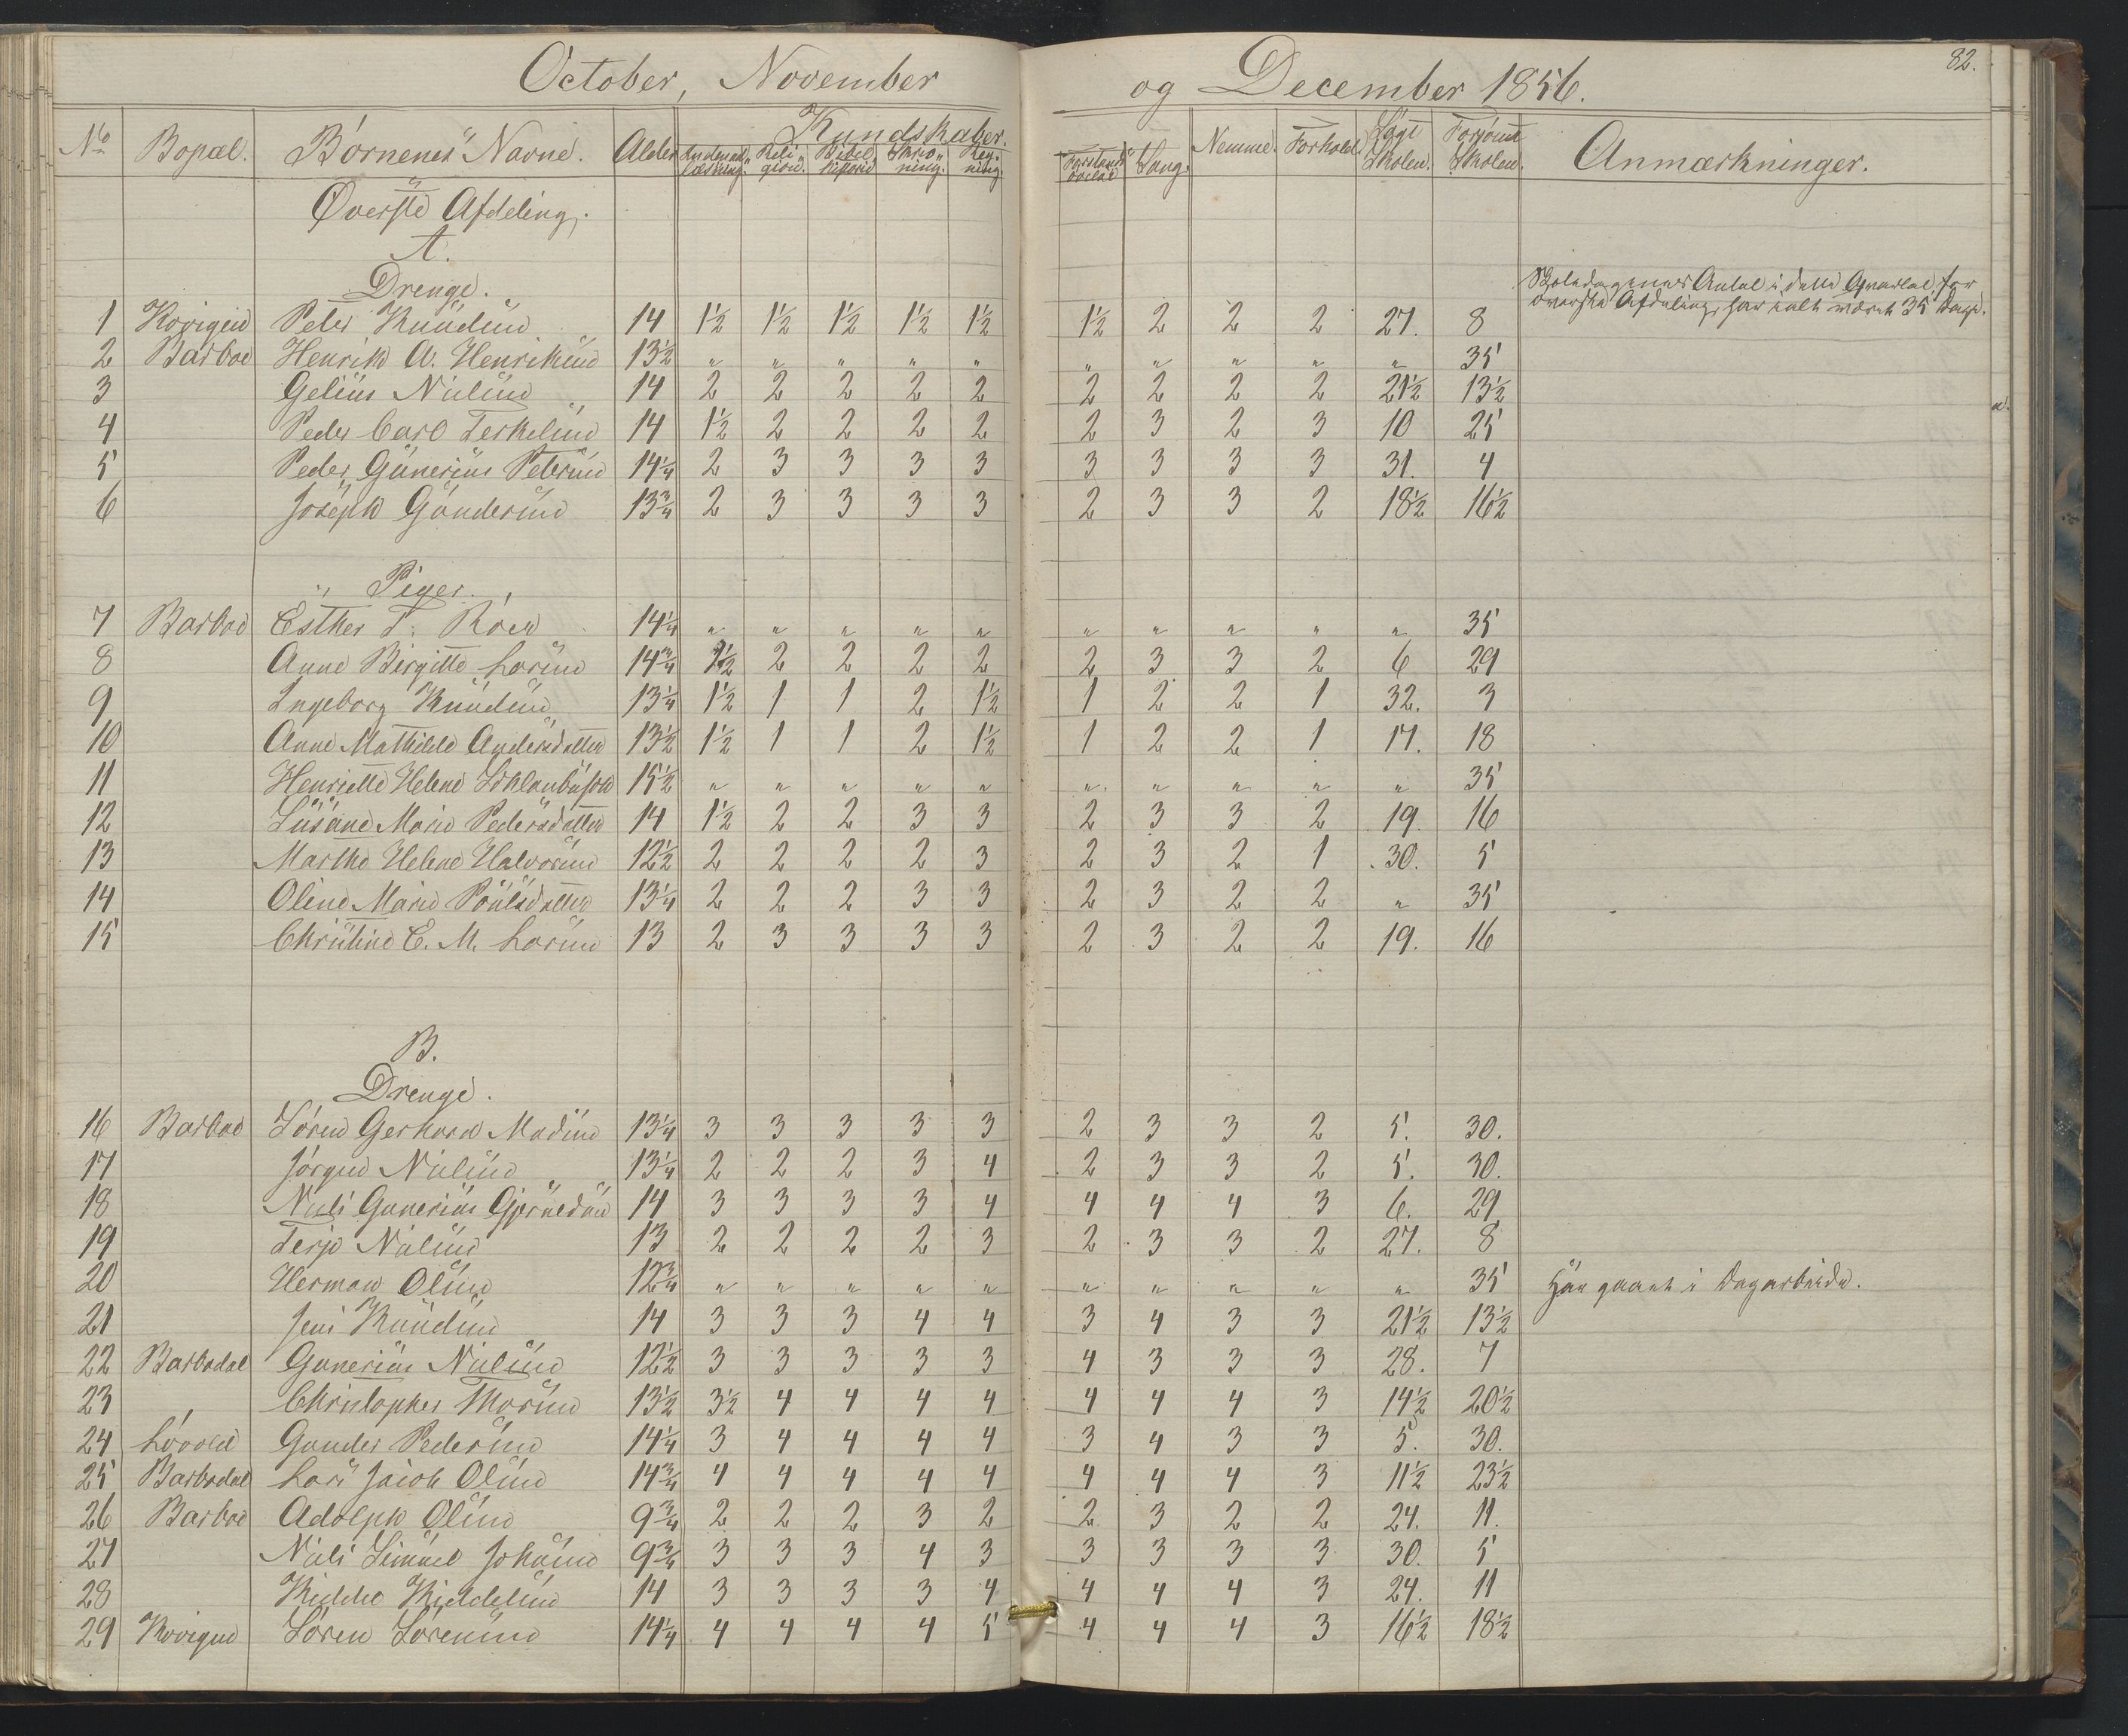 82.
October, November og December 1856.
No Bopæl. Börnenes Navne. Alder Kundskaber. Nemme. Forhold. Søgt Skolen. Forsömt Skolen. Anmærkninger.
Indenad-læsning. Reli-gion. Bibel-historie Skriv-ning. Reg-ning. Forstands övelse Sang.
Øverste Afdeling.
A.
Drenge.
Skoledagenes Antal i dette Qvartal, for
øverste Afdeling, har ialt været 35 Dage.
1 Kovigen Peter Knudsen 14 1½ 1½ 1½ 1½ 1½ 1½ 2 2 2 27. 8
2 Barboe Henrik A. Henriksen 13½ " " " " " " " " " " 35
3 Gelius Nielsen 14 2 2 2 2 2 2 2 2 2 21½ 13½
4 Peder Carl Terkelsen 14 1½ 2 2 2 2 2 3 2 3 10 25
5 Peder Gunerius Petersen 14¼ 2 3 3 3 3 3 3 3 3 31. 4
6 Joseph Gundersen 13¾ 2 3 3 3 3 2 3 3 2 18½ 16½
Piger.
7 Barboe Esther T. Röen 14¼ " " " " " " " " " " 35
8 Anne Birgitte Larsen 14¾ 1½ 2 2 2 2 2 3 3 2 6 29
9 Ingeborg Knudsen 13¼ 1½ 1 1 2 1½ 1 2 2 1 32. 3
10 Anne Mathilde Andersdatter 13½ 1½ 1 1 2 1½ 1 2 2 1 17. 18
11 Henriette Helene 15½ " " " " " " " " " " 35
12 Susane Marie Pedersdatter 14 1½ 2 2 3 3 2 3 3 2 19. 16
13 Marthe Helene Halvorsen 12½ 2 2 2 2 3 2 3 2 1 30. 5
14 Oline Marie Poulsdatter 13¼ 2 2 2 3 3 2 3 2 2 " 35
15 Christine E. M. Larsen 13 2 3 3 3 3 2 3 2 2 19. 16
B.
Drenge.
16 Barboe Sören Gerhard Madsen 13¼ 3 3 3 3 3 2 3 3 2 5. 30.
17 Jörgen Nielsen 13¼ 2 2 2 3 4 2 3 3 2 5. 30.
18 Niels Gunerius 14 3 3 3 3 4 4 4 4 3 6. 29
19 Terje Nielsen 13 2 2 2 2 3 2 3 3 2 27. 8
20 Herman Olsen 12¾ " " " " " " " " " " 35 Har gaaet i Dagarbeide.
21 Jens Knudsen 14 3 3 3 4 4 3 4 3 3 21½ 13½
22 Barbodal Gunerius Nielsen 12½ 3 3 3 3 3 4 3 3 3 28. 7
23 Christopher Thorsen 13½ 3½ 4 4 4 4 4 4 4 3 14½ 20½
24 Lövold Gunder Pedersen 14¼ 3 4 4 4 4 3 4 3 3 5. 30.
25 Barbodal Lars Jacob Olsen 14¾ 4 4 4 4 4 4 4 4 3 11½ 23½
26 Barboe Adolph Olsen 9¾ 2 2 2 3 2 2 3 2 2 24. 11.
27 Niels Johnsen 9¾ 3 3 3 4 3 3 3 3 3 30. 5
28 14 3 3 3 3 4 4 4 4 3 24. 11
29 Kovigen Sören Sörensen 14¼ 4 4 4 4 5 4 4 4 3 16½ 18½